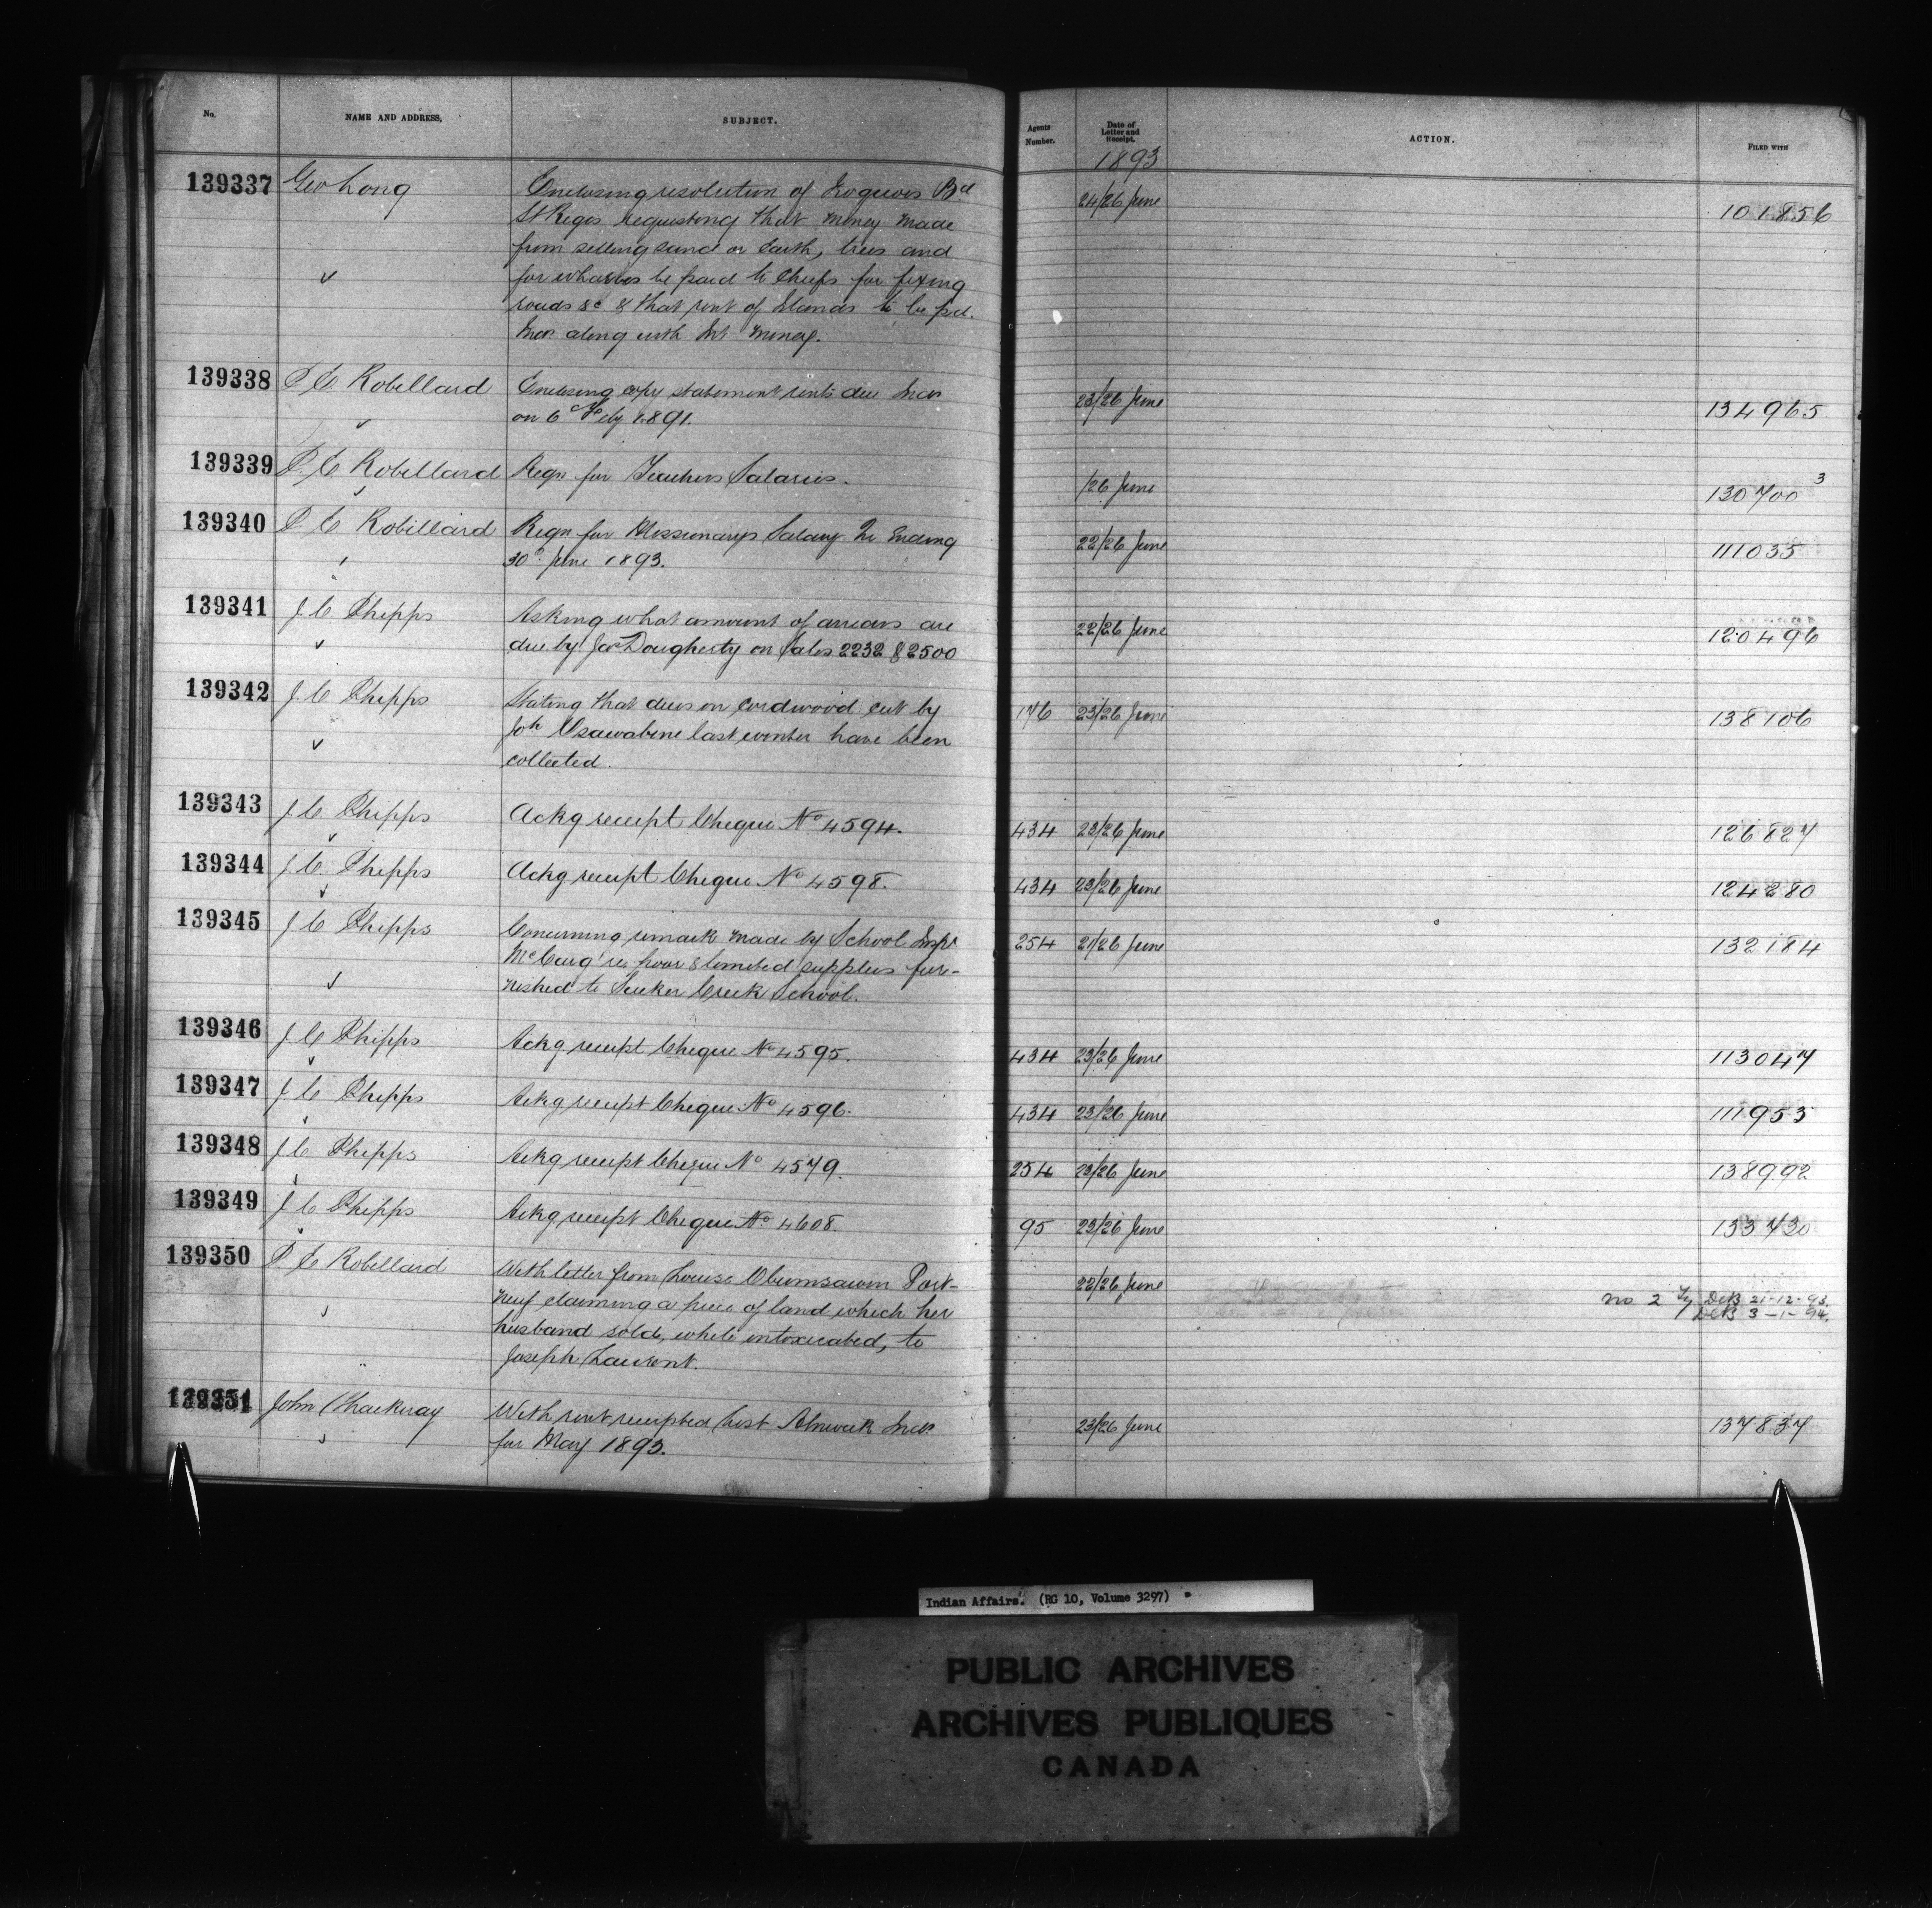 No. NAME AND ADDRESS. SUBJECT. Agents Number. Date of Letter and Receipt. ACTION. FILED WITH
1893
139337 Geo Long Enclosing resolution of Iroquois Bd 24/26 June 101856
St Regis requesting that money made
from selling sand or earth, trees and
for wharves be paid to Chiefs for fixing
roads &c & that rent of Islands to be pd.
Inds along with Int money.
139338 P. E Robillard Enclosing copy statement rents due Inds 23/26 June 134965
on 6th Feby 1891.
139339 P. E Robillard Reqn for Teachers Salaries. /26 June 130700 3
139340 P. E Robillard Reqn for Missionarys Salary Qr Ending 22/26 June 111035
30th June 1893.
139341 J. C. Phipps Asking what amount of arrears are 22/26 June 120496
due by Jas Dougherty on Sales 2232 & 2500
139342 J. C Phipps Stating that dues on cordwood cut by 176 23/26 June 138106
Joh Osawabine last winter have been
collected.
139343 J. C. Phipps Ackg receipt Cheque No 4594. 434 23/26 June 126827
139344 J. C. Phipps Ackg receipt Cheque No 4598. 434 23/26 June 124280
139345 J C Phipps Concerning remark made by School Inspr 254 21/26 June 132184
McCaig re poor & limited supplies fur-
nished to Sucker Creek School.
139346 J. C Phipps Ackg receipt Cheque No 4595. 434 23/26 June 113047
139347 J C Phipps Ackg receipt Cheque No 4596. 434 23/26 June 111953
139348 J C Phipps Ackg receipt Cheque No 4579. 254 23/26 June 138992
139349 J C Phipps Ackg receipt Cheque No 4608. 95 23/26 June 133730
139350 P E Robillard With letter from Louise Obumsawin Port- 22/26 June
neuf claiming a piece of land which her no 2 DCB 21-12-93
husband sold, while intoxicated, to DCB 3-1-94.
Joseph Laurent.
139351 John Thackeray With rent receipted list Alnwick Inds 23/26 June 137837
for May 1893.
Indian Affairs. (RG 10, Volume 3297)
PUBLIC ARCHIVES
ARCHIVES PUBLIQUES
CANADA